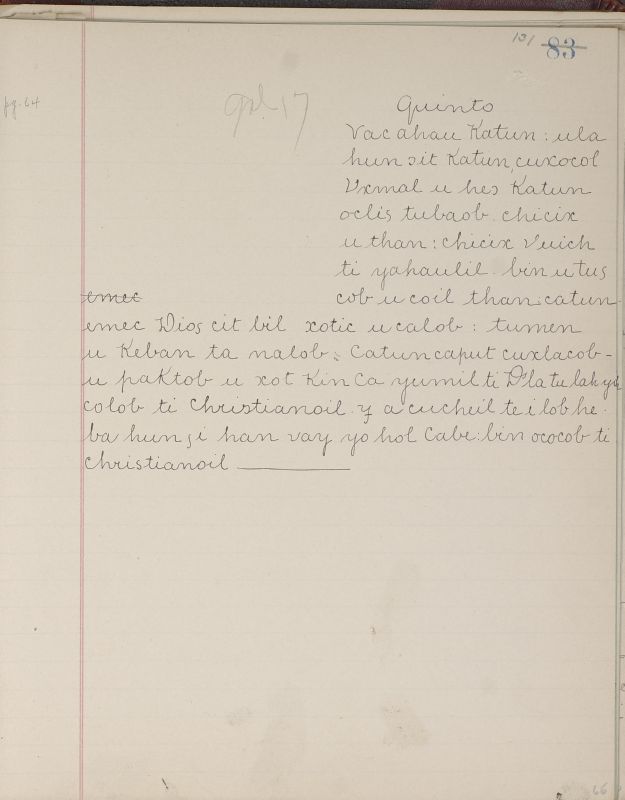 131 83
pg. 64
Quinto
Vac ahau Katun : ula
hun ɔit Katun, cuxocol
Vxmal u heɔ Katun
oclis tubaob. chicix
u than : chicix Vuich
ti yahaulil. bin u tus
emec cob u coil than : catun
emec Dios cit bil xotic u calob : tumen
u Keban ta nalob ; Catun caput cuxlacob -
u paKtob u xot Kin Ca yumil ti D
colob ti Christianoil. y a cucheil te i lob he.
ba hun ȝi han vay yo hol Cabe : bin ococob ti
Christianoil
66